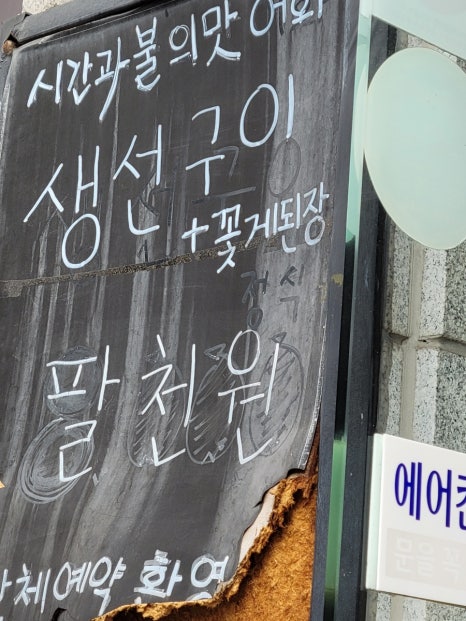 시간과불의맛 어화
생선구이
+꽃게된장
정식
팔천원
단체예약 환영
에어컨
문을 꼭